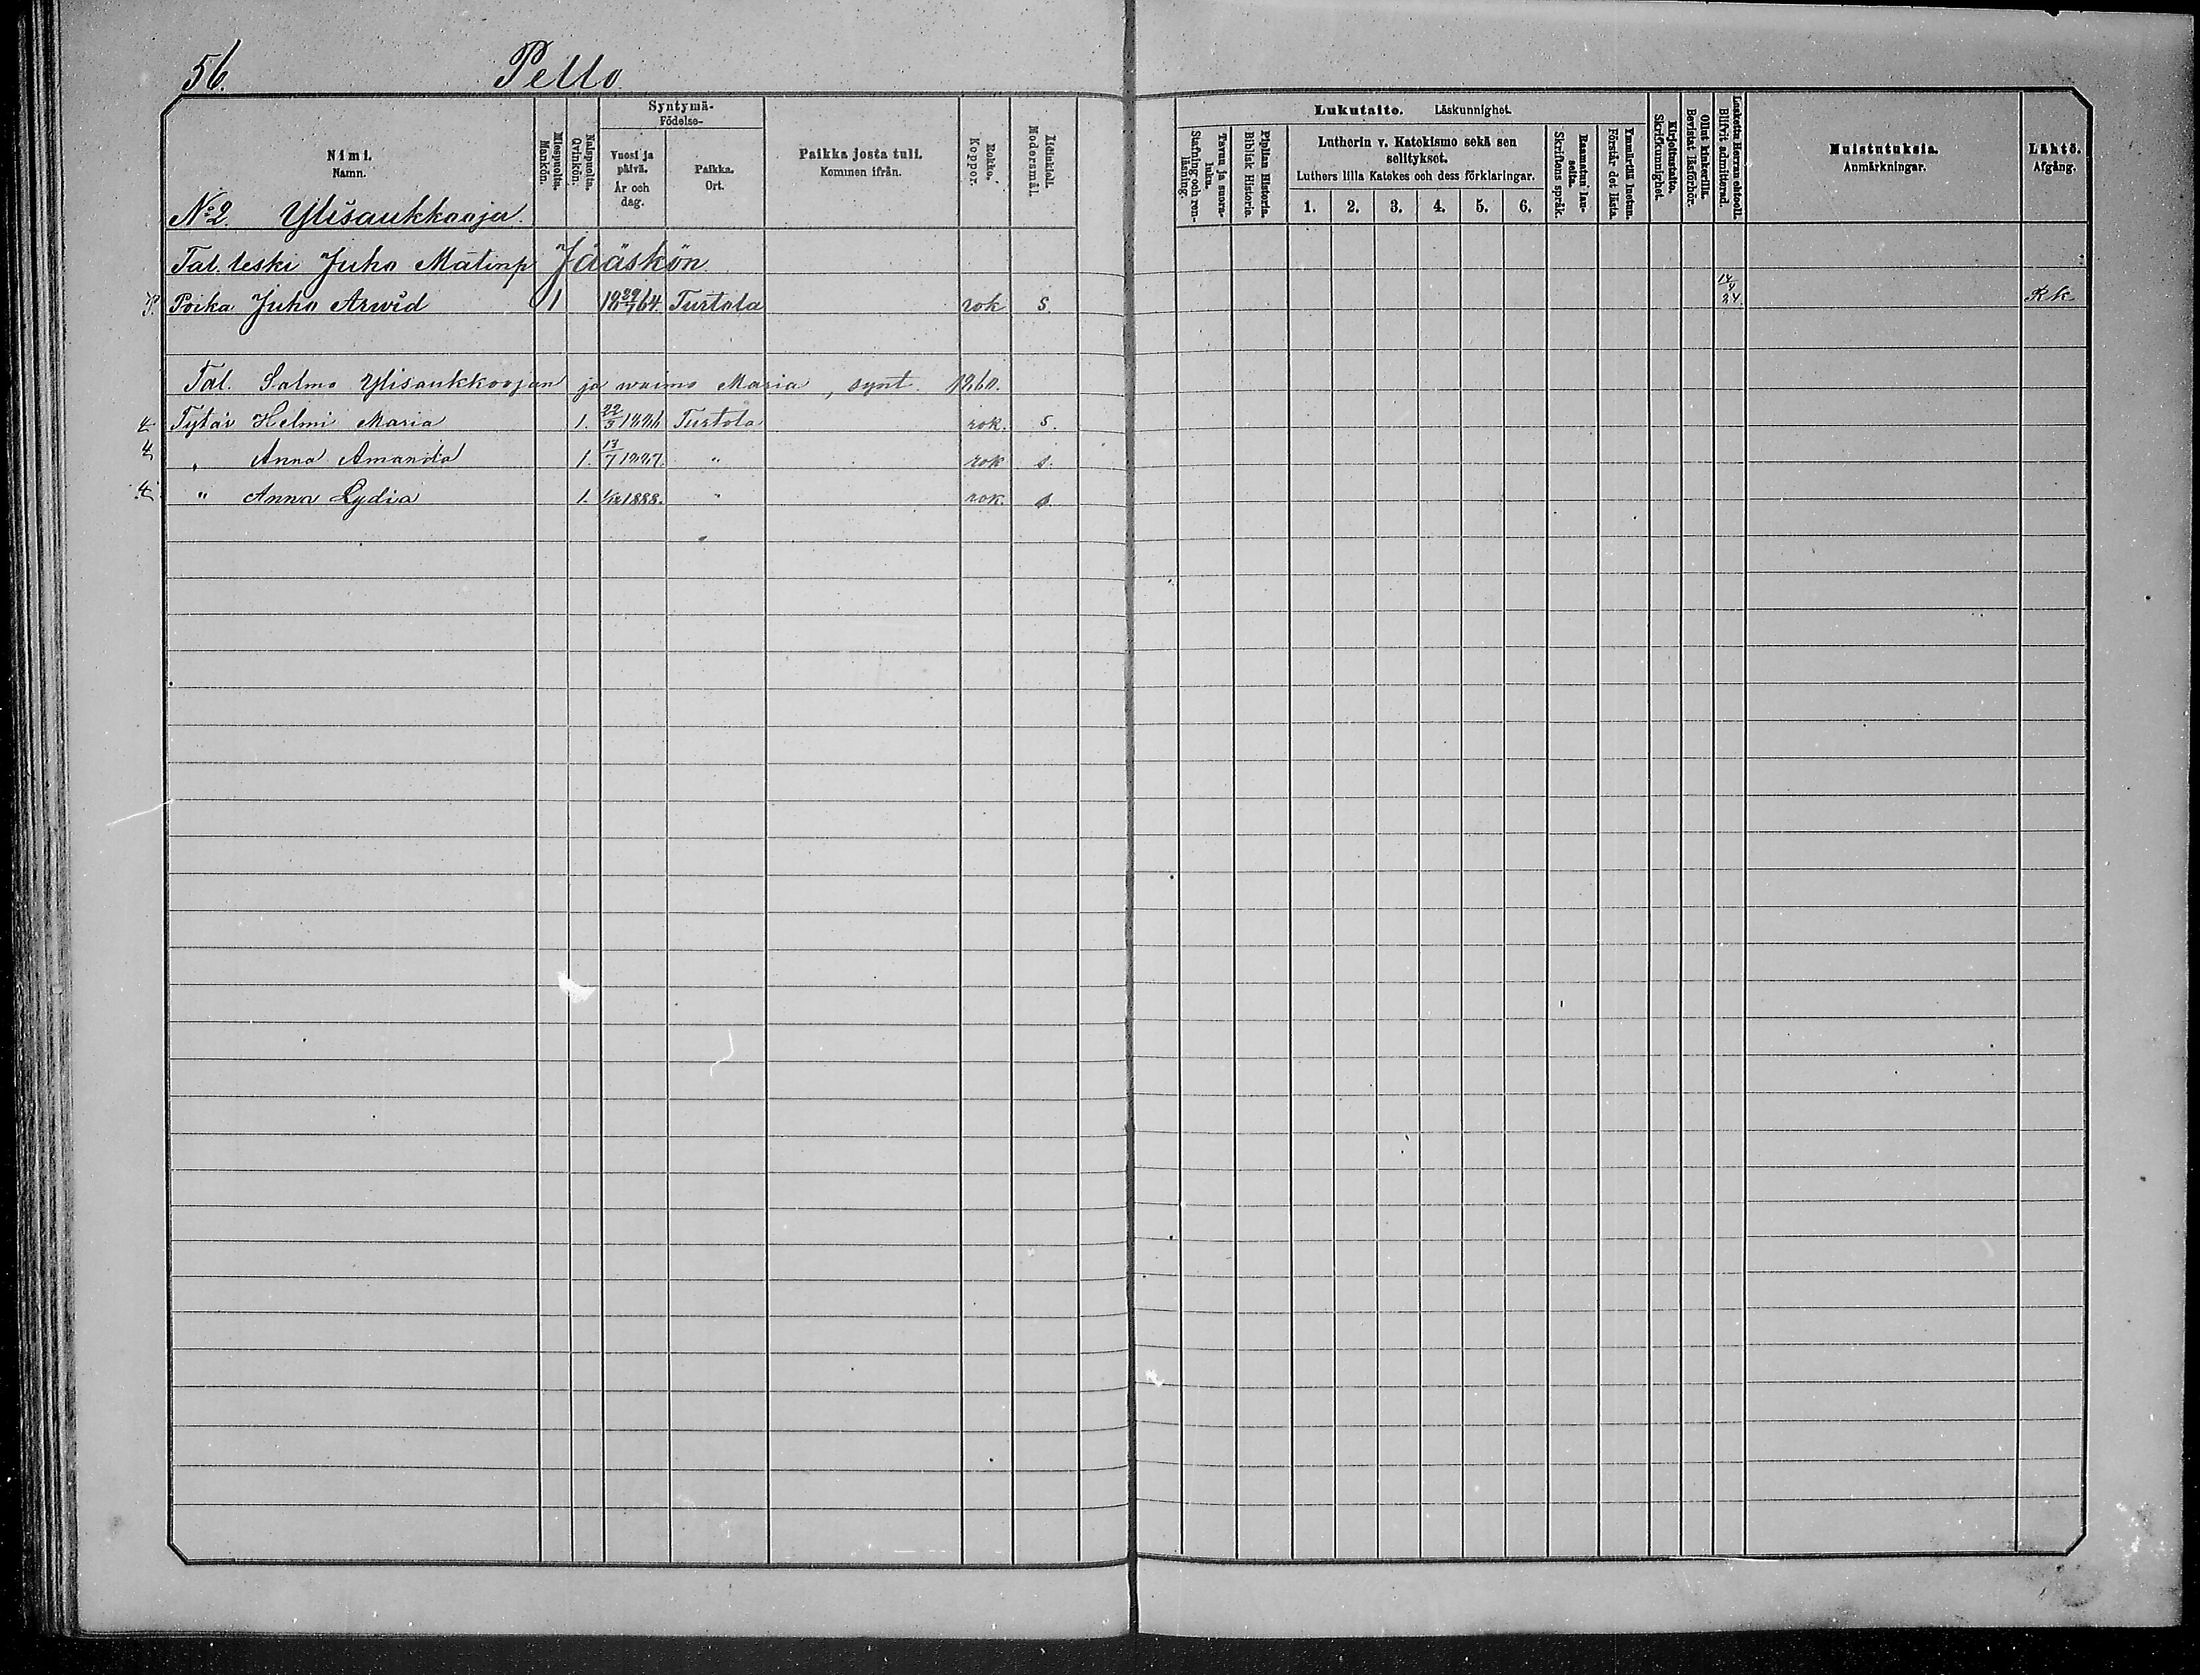 56. Pello.
Syntymä-
Födelse-
Nimi.
Namn.
Miespuolia.
Mankön.
Naispuolia.
Qvinkön.
Vuosi ja päivä.
År och dag.
Paikka.
Ort.
Paikka josta tuli.
Kommen ifrån.
Rokko.
Koppor.
Äidinkieli.
Modersmål.
Lukutaito. Läskunnighet.
Tavuu ja suoraluku.
Stafning och renläsning.
Piplian Historia.
Biblisk Historia.
Lutherin v. Katekismo sekä sen
selitykset.
Luthers lilla Katekes och dess förklaringar.
1. 2. 3. 4. 5. 6.
Raamatun lauseita.
Skriftens språk.
Ymmärtää luetun.
Förstår det lästa.
Kirjoitustaito.
Skrifkunnighet.
Ollut kinkerillä.
Bevistat läsförhör.
Laskettu Herran ehtooll.
Blifvit admitterad.
Muistutuksia.
Anmärkningar.
Lähtö.
Afgång.
No 2. Ylisaukkooja.
Tal. leski Juho Matinp Jääskön
Poika Juho Arwid 1 18 29/ 64. Turtola rok s. Rk
Tal. Salmo Ylisaukkoojan ja waimo Maria, synt. 1860.
Tytär Helmi Maria 1. 22/3 1886 Turtola rok. s.
" Anna Amanda 1. 13/7 1887. " rok s.
" Anna Lydia 1. 1/12 1888. " rok. s.